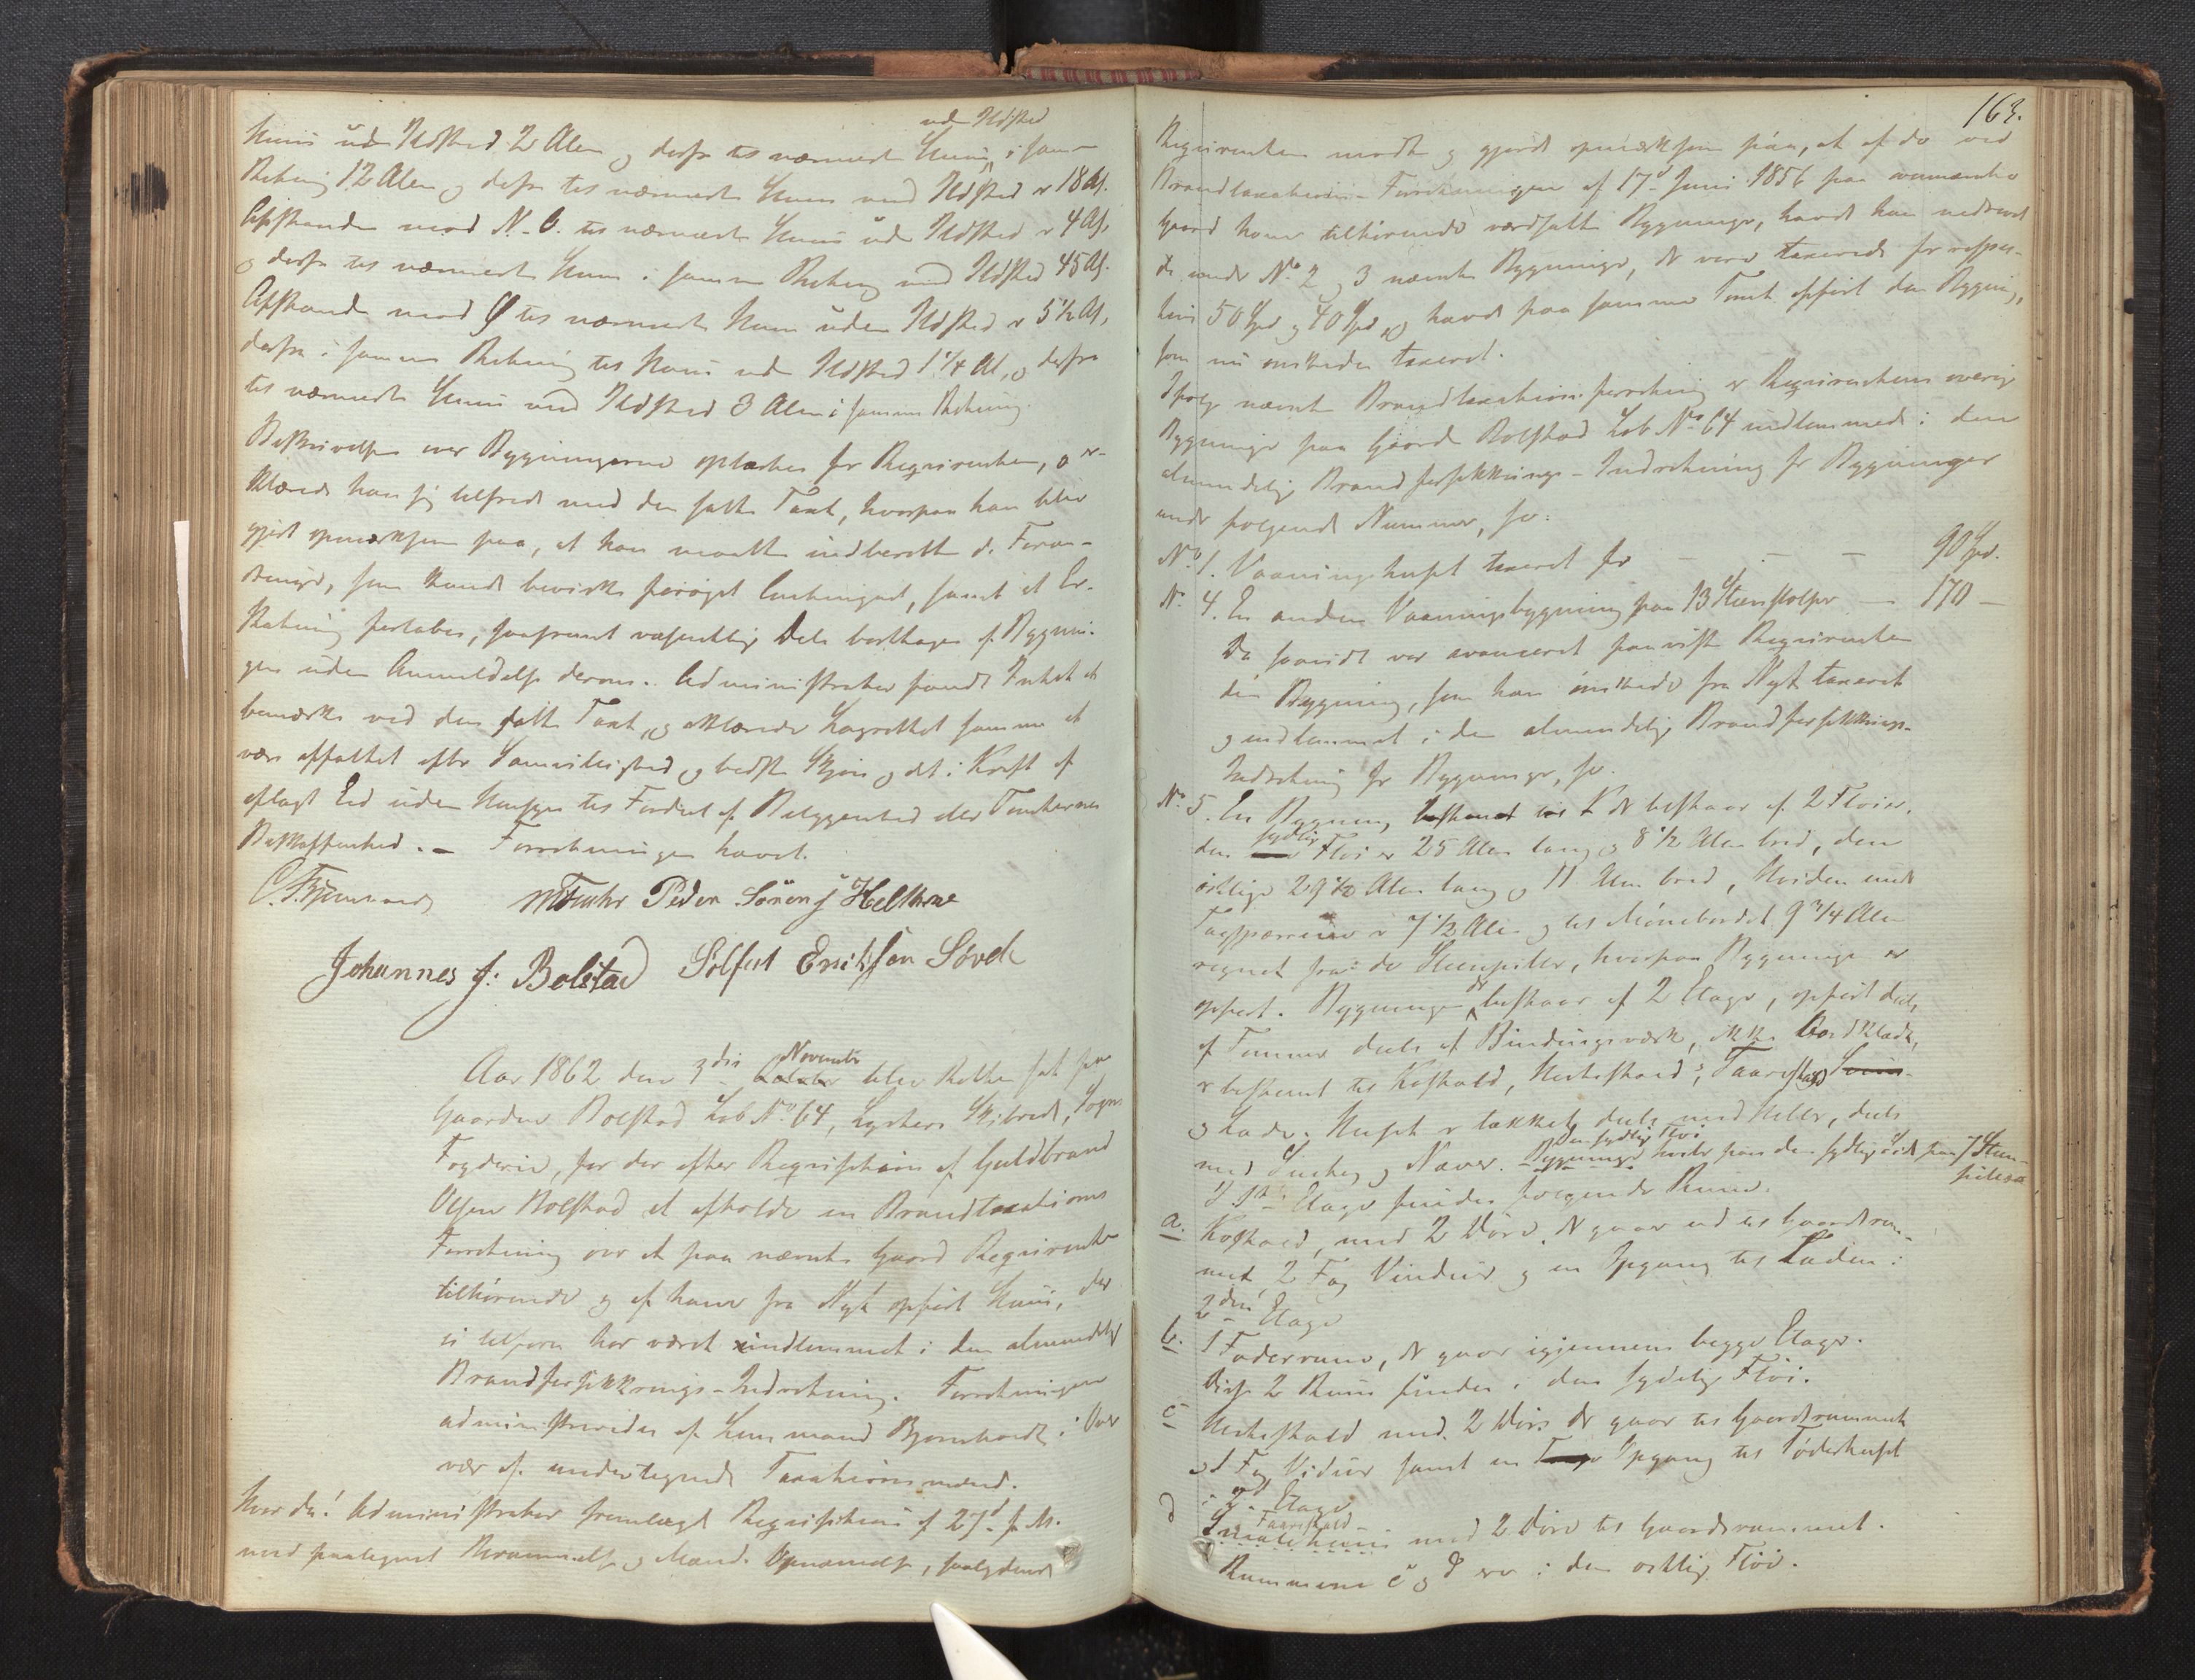 uden Ildsted
Huus uden Ildsted 2 Alen og derfra til nærmeste Huus i samme
Retning 12 Alen og derfra til nærmeste Huus med Ildsted er 18 Al.
Afstanden mod N.O. til nærmeste Huus uden Ildsted er 4 Al.
og derfra til nærmeste Huus i samme Retning med Ildsted 45 Al.
Afstanden mod Ø til nærmeste Huus uden Ildsted er 5½ Al.
derfra i samme Retning til Huus uden Ildsted 1¼ Al, og derfra
til nærmeste Huus med Ildsted 3 Alen i samme Retning.
Beskrivelsen over Bygningerne oplæstes for Requirenten, og er-
klærede han sig tilfreds med den satte Taxt, hvorpaa han blev
gjort opmærksom paa, at han maatte indberette de Foran-
dringer, som kunde bevirke forøget Contingent, samt at Er-
statning fortabes, saafremt væsentlige Dele borttages af Bygnin-
gen uden Anmeldelse derom. Administrator fandt Intet at
bemærke ved den satte Taxt, og erklærede Lagrettet samme at
være affattet efter Samvittighed og bedste Skjøn og det i Kraft af
aflagt Eed uden Hensyn til Fordeel af Beliggenhed eller Tomternes
Beskaffenhed. – Forretningen hævet.
Peder Sørensen
Johannes J: Bolstad Solfest Erichssøn Søvde
Aar 1862 den 3die November blev Retten sat paa
Gaarden Bolstad Løb No 64, Lysters Skibrede, Sogns
Fogderie, for der efter Requisition af Guldbrand
Olsen Bolstad at afholde en Brandtaxations
Forretning over et paa nævnte Gaard Requirenten
tilhørende og af ham fra Nyt opført Huus, der
ei tilforn har været indlemmet i den almindelige
Brandforsikkrings-Indretning. Forretningen
administreredes af Lensmand Bjørnhardt i Over-
vær af undertegnede Taxationsmænd.
Hvor da! Administrator fremlagde Requisition af 27d f. M.
med paategnet Berammelse og Mænds Opnævnelse, saalydende
163.
Requirenten mødte og gjorde opmærksom paa, at af de ved
Brandtaxations-Forretningen af 17d Juni 1856 paa ommeldte
Gaard ham tilhørende værdsatte Bygninger, havde han nedrevet
de under No 2 og 3 nævnte Bygninger, der vare taxerede for respec-
tive 50 Spd og 40 Spd, og havde paa samme Tomt opført den Bygning,
som nu ønskedes taxeret.
Ifølge nævnte Brandtaxationsforretning er Requirentens øvrige
Bygninger paa Gaarden Bolstad Løb No 64 indlemmede i den
almindelige Brandforsikkrings-Indretning for Bygninger
under følgende Nummer, so:
No 1. Vaaningshuset taxeret for — — — 90 Spd.
No 4. En anden Vaaningsbygning paa 13 Steenstolper — 170 —
Da saavidt var avanceret paaviste Requirenten
den Bygning, som han ønskede fra Nyt taxeret
og indlemmet i den almindelige Brandforsikkrings-
Indretning for Bygninger, so.
No 5. En Bygning der bestaar af 2 Fløie,
den sydlige Fløi er 25 Alen lang og 8½ Alen bred, den
østlige 29½ Alen lang og 11 Alen bred, Høiden under
Tagsparrerne er 7½ Alen og til Mønebordet 9¾ Alen
regnet fra de Steenpiller, hvorpaa Bygningen er
opført. Bygningen der bestaar af 2 Etager, opført deels
af Tømmer deels af Bindingsværk, ikke Bordklædt,
er bestemt til Kostald, Hestestald, Faarestald
og Lade. Huset er tækket deels med Heller, deels
med Næver. Den sydlige Fløi hviler paa den sydlige Side paa 7 Steen-
pillere
I 1ste Etage findes følgende Rum.
a. Kostald, med 2 Døre der gaar ud til Gaardsrum-
met, 2 Fag Vinduer og en Opgang til Laden i
2den Etage
b. 1 Foderrum, der gaar igjennem begge Etager.
Disse 2 Rum findes i den sydlige Fløi.
c Hestestald med 2 Døre der gaar til Gaardsrummet
1 Fag Vindue samt en Opgang til Foderhuset
i 2d Etage
d Faarestald med 2 Døre til Gaardsrummet.
Rummene c og d ere i den østlige Fløi.